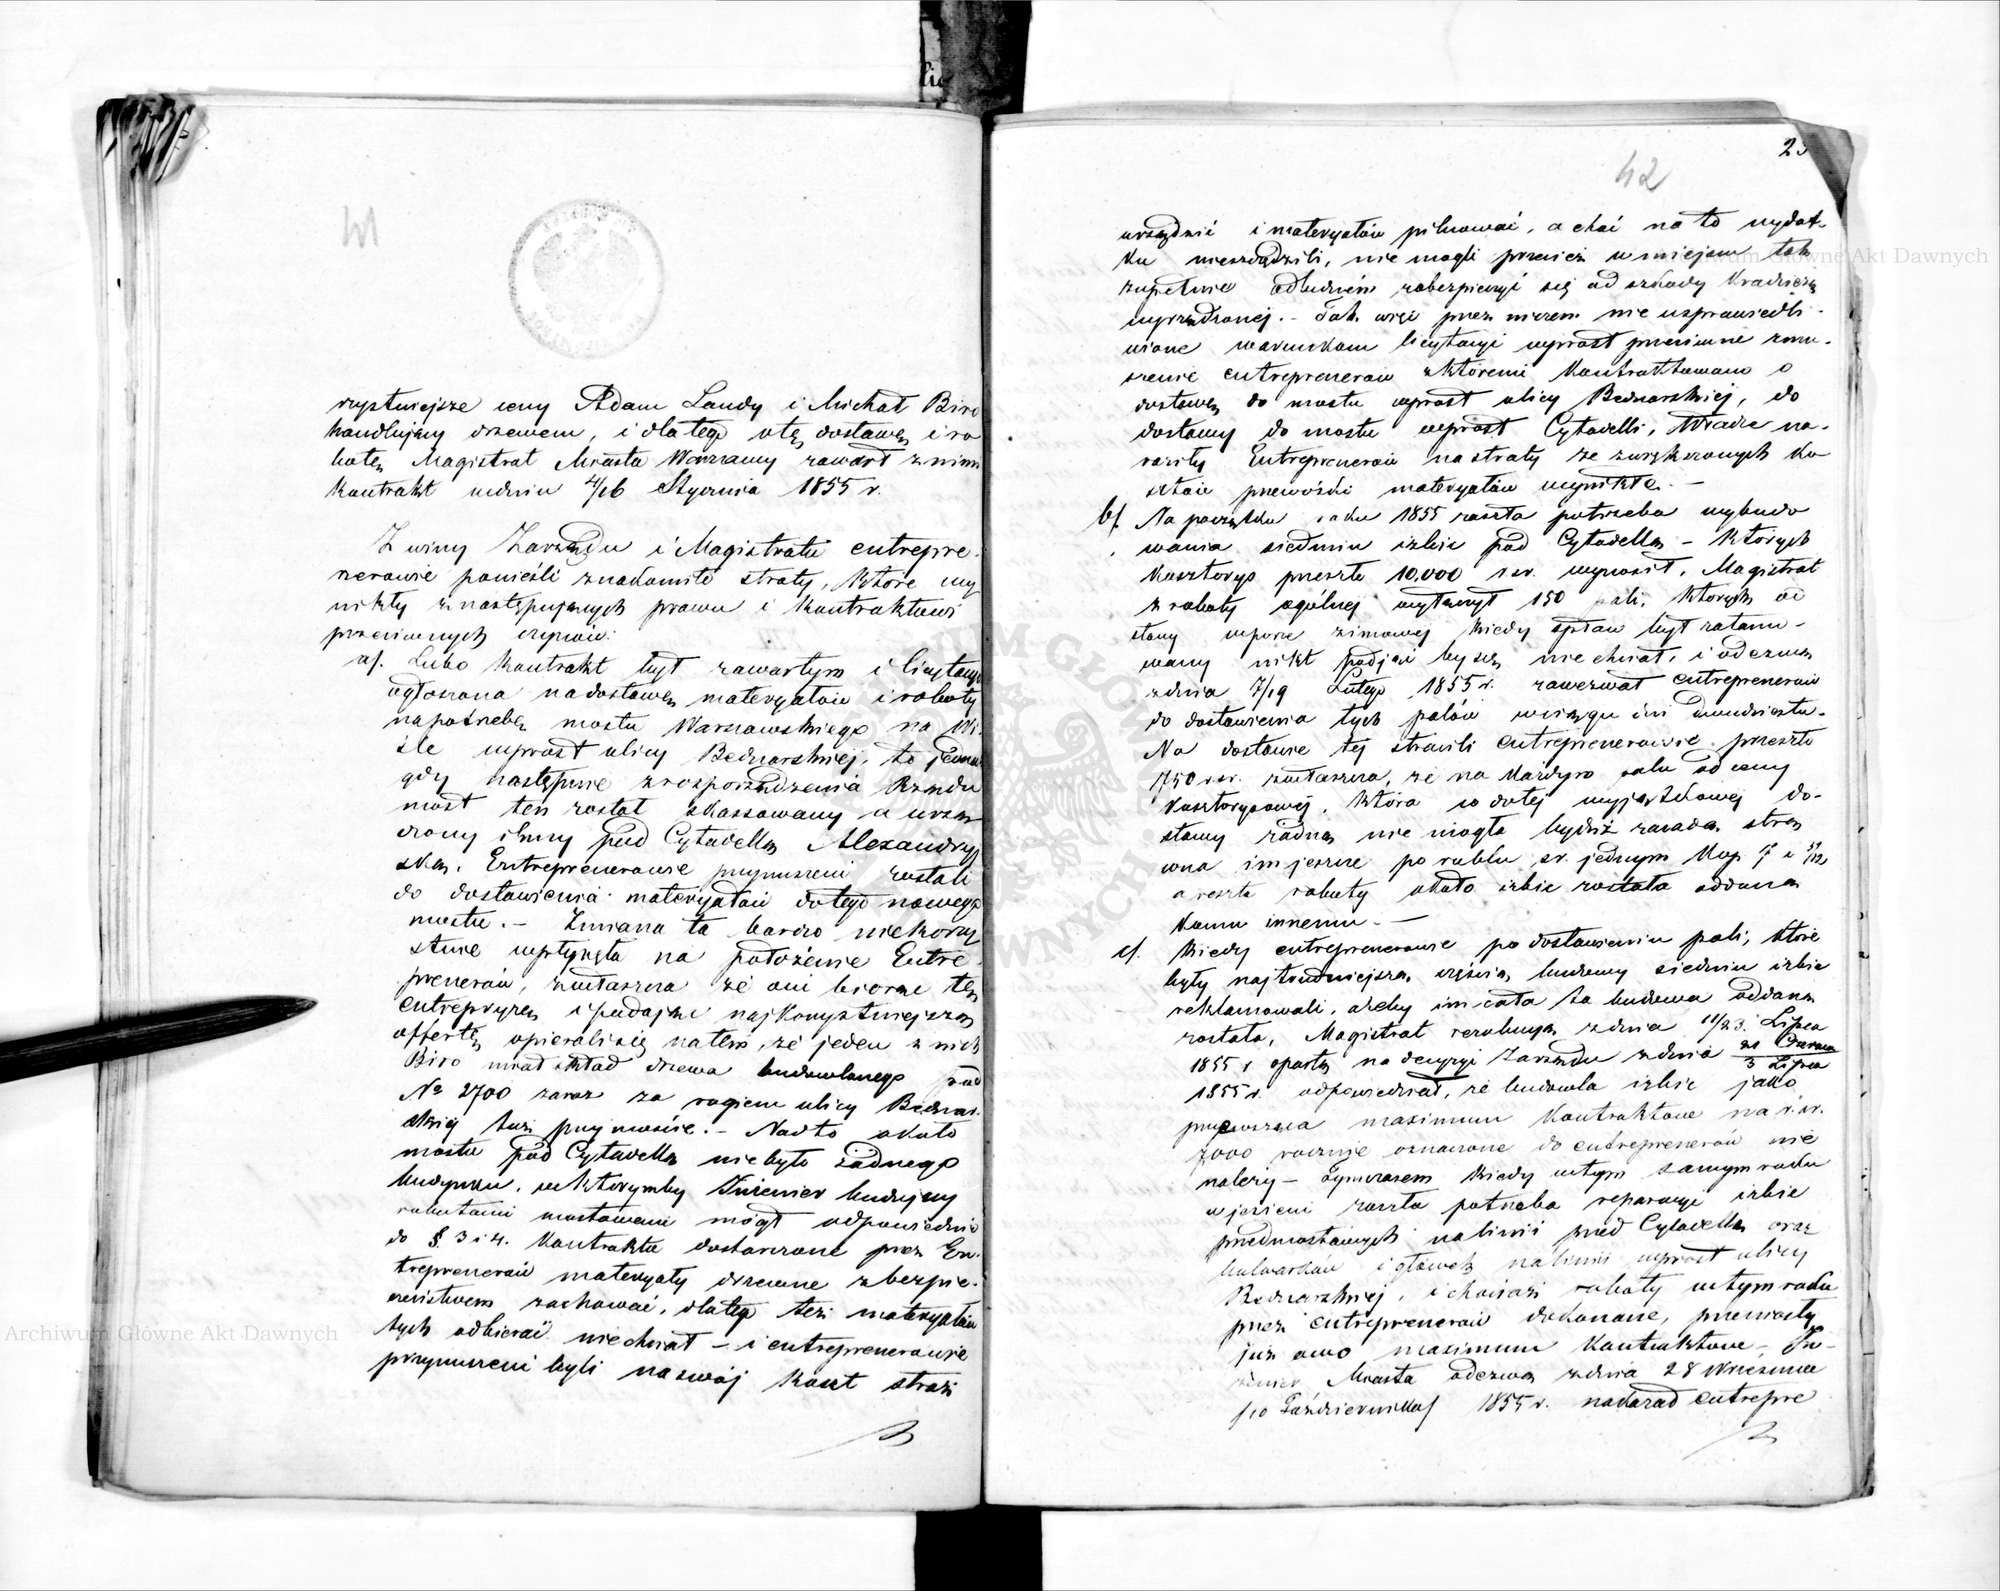 41
rzystniejsze ceny Adam Landy i Michał Biro
handlujący drzewem, i dlatego o tę dostawę i ro
botę Magistrat Miasta Warszawy zawarł z nimi
Kontrakt w dniu 4/16 Stycznia 1855 r.
Z winy Zarządu i Magistratu entrepre-
nerowie ponieśli znakomite straty, które wy
nikły z następujących prawu i Kontraktowi
przeciwnych czynów:
a/. Lubo Kontrakt był zawartym i licytacya
ogłoszona na dostawę materyałów i roboty
na potrzebę mostu Warszawskiego na Wi-
śle wprost ulicy Bednarskiej, to jednak
gdy następnie z rozporządzenia Rządu
most ten został skassowany a urzą
dzony inny pod Cytadellą Alexandryj
ską. Entreprenerowie przymuszeni zostali
do dostawienia materyałów do tego nowego
mostu. – Zmiana ta bardzo niekorzy
stnie wpłynęła na położenie Entre
prenerów, zwłaszcza że oni biorąc tę
entrepryzę i podając najkorzystniejszą
offertę opierali się na tem, że jeden z nich
Biro miał skład drzewa budowlanego pod
No 2700 zaraz za rogiem ulicy Bednar-
skiej tuż przy moście. – Nadto około
mostu pod Cytadellą nie było żadnego
budynku, w którymby Inżenier kierujący
robotami mostowemi mógł odpowiednio
do §. 3 i 4. Kontraktu dostarczone przez En-
treprenerów materyały drzewne z bezpie-
czeństwem zachować, dlatego też materyałów
tych odbierać nie chciał – i entreprenerowie
przymuszeni byli na swój koszt straż
23
42
urządzić i materyałów pilnować, a choć na to wydat-
ku nieszczędzili, nie mogli przecież w miejscu tak
zupełnie odludniem zabezpieczyć się od szkody kradzieżą
wyrządzonej. – Tak więc przez niczem nie usprawiedli-
wione warunkom licytacyi wprost przeciwne zmu-
szenie entreprenerów z któremi Kontraktowano o
dostawę do mostu wprost ulicy Bednarskiej, do
dostawy do mostu wprost Cytadelli, Władze na-
raziły Entreprenerów na straty ze zwiększonych ko
sztów przewózki materyałów wynikłe. –
b/. Na początku roku 1855 zaszła potrzeba wybudo
wania siedmiu izbic pod Cytadellą – których
kosztorys przeszło 10,000 r.sr. wynosił, Magistrat
z roboty ogólnej wyłączył 150 pali, których do
stawy w porze zimowej kiedy spław był zatamo-
wany nikt podjąć by się nie chciał, i odezwą
z dnia 7/19 Lutego 1855 r. zawezwał entreprenerów
do dostawienia tych palów w ciągu dni dwudziestu.
Na dostawie tej stracili entreprenerowie przeszło
750 r.sr. zwłaszcza, że na każdym palu od ceny
kosztorysowej, która co do tej wyjątkowej do-
stawy żadną nie mogła bydź zasadą strą
cona im jeszcze po rublu sr. jednym kop.
a reszta roboty około izbic została oddana
komu innemu. –
c/. Kiedy entreprenerowie po dostawieniu pali, które
były najtrudniejszą częścią budowy siedmiu izbic
reklamowali, ażeby im cała ta budowa oddana
została, Magistrat rezolucyą z dnia 11/23. Lipca
1855 r. opartą na decyzyi Zarządu z dnia 21 Czerwca / 3 Lipca
1855 r. odpowiedział, że budowla izbic jako
przewyższająca maximum Kontraktowe na r.sr.
7000 rocznie oznaczone do entreprenerów nie
należy – Tymczasem kiedy w tym samym roku
w jesieni zaszła potrzeba reparacyi izbic
przedmostowych na linii pod Cytadellą oraz
bulwarków i główek na linii wprost ulicy
Bednarskiej, i chociaż roboty w tym roku
przez entreprenerów dokonane, przeniosły
już owo maximum Kontraktowe – In-
żenier Miasta odezwą z dnia 28 Września
/10 Października/ 1855 r. nakazał entrepre
Archiwum Główne Akt Dawnych
Archiwum Główne Akt Dawnych